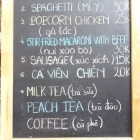 2 SPAGHETTI (MÌ Ý) 30K
3. POPCORN CHICKEN 25
(gà lắc)
4. STIR-FRIED MACARONI WITH BEEF
(nui xào bò) 30K
5. SAUSAGE (xúc xích) 15K
6. CÁ VIÊN CHIÊN 20K
• MILK TEA (trà sữa)
PEACH TEA (trà đào)
COFFEE (cà phê)